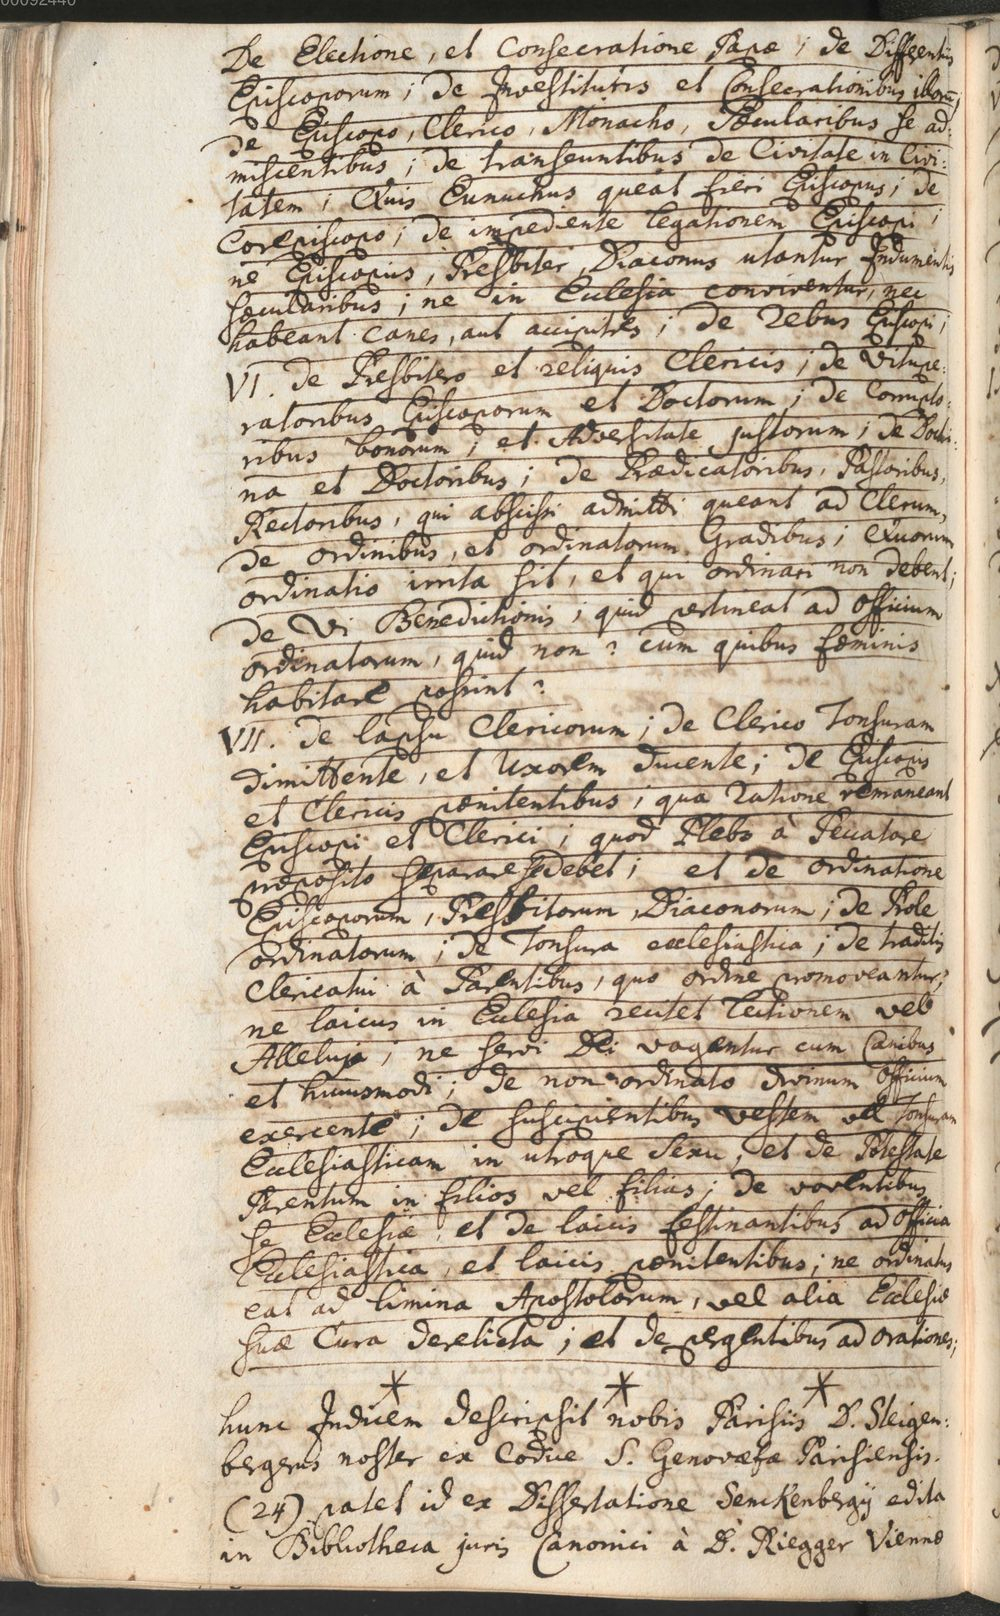 00092440
De Electione, et Consecratione Papæ; de Differentiis
Episcoporum; de Investituris et Consecrationibus illorum;
de Episcopo, Clerico, Monacho, Sæcularibus se ad-
miscentibus; de transeuntibus de Civitate in Civi-
tatem; Quis Eunuchus queat fieri Episcopus; de
Corepiscopo; de impediente legationem Episcopi;
ne Episcopus, Presbiter, Diaconus utantur Indumentis
sæcularibus; ne in Eclesia conviventur, nec
habeant canes, aut accipitres; de rebus Episcopi;
VI. de Presbitero et reliquis Clericis; de Vitupe-
ratoribus Episcoporum et Doctorum; de Corrupto-
ribus bonorum; et Adversitate justorum; de Doctri-
na et Doctoribus; de Prædicatoribus, Pastoribus,
Rectoribus, qui abscissi admitti queant ad Clerum,
de ordinibus, et ordinatorum Gradibus; Quorum
ordinatio irrita sit, et qui ordinari non debent;
de Vi Benedictionis; quid pertineat ad officium
ordinatorum, quid non? cum quibus fœminis
habitare possint?
VII. de lapsu Clericorum; de Clerico Tonsuram
dimittente, et Uxorem ducente; de Episcopis
et Clericis pœnitentibus; qua ratione remaneant
Episcopi et Clerici; quod Plebs à Peccatore
præposito separare se debet; et de ordinatione
Episcoporum, Presbitorum, Diaconorum; de Prole
ordinatorum; de Tonsura ecclesiastica; de traditis
Clericatui à Parentibus, quo ordine promoveantur;
ne laicus in Eclesia recitet lectionem vel
Alleluja; ne servi Dei vagentur cum Canibus
et hujusmodi; de non ordinato divinum officium
exercente; de suscipientibus vestem vel Tonsuram
Ecclesiasticam in utroque Sexu, et de Potestate
Parentum in filios vel filias; de voventibus
se Ecclesiæ, et de laicis festinantibus ad officia
Eclesiastica, et laicis pœnitentibus; ne ordinatus
eat ad limina Apostolorum, vel alia Ecclesiæ
suæ Cura derelicta; et de pergentibus ad orationes;
hunc Indicem descripsit nobis Parisiis D. Steigen-
bergerus noster ex Codice S. Genovæfæ Parisiensis.
(24) patet id ex Dissertatione Senckenbergij edita
in Bibliotheca juris Canonici à D. Riegger Viennæ